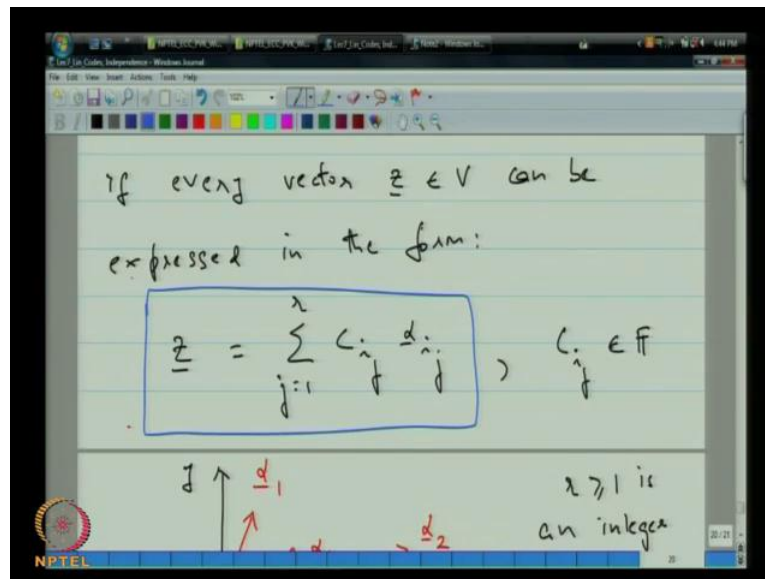 Lec7_Lin_Codes, Independence - Windows Journal
File Edit View Insert Actions Tools Help
if every vector z ∈ V can be
expressed in the form:
z = Σ_{j=1}^{r} c_{i_j} α_{i_j} , c_{i_j} ∈ F
y α_1 r ⩾ 1 is
α_2 an integer
20/21
20
NPTEL